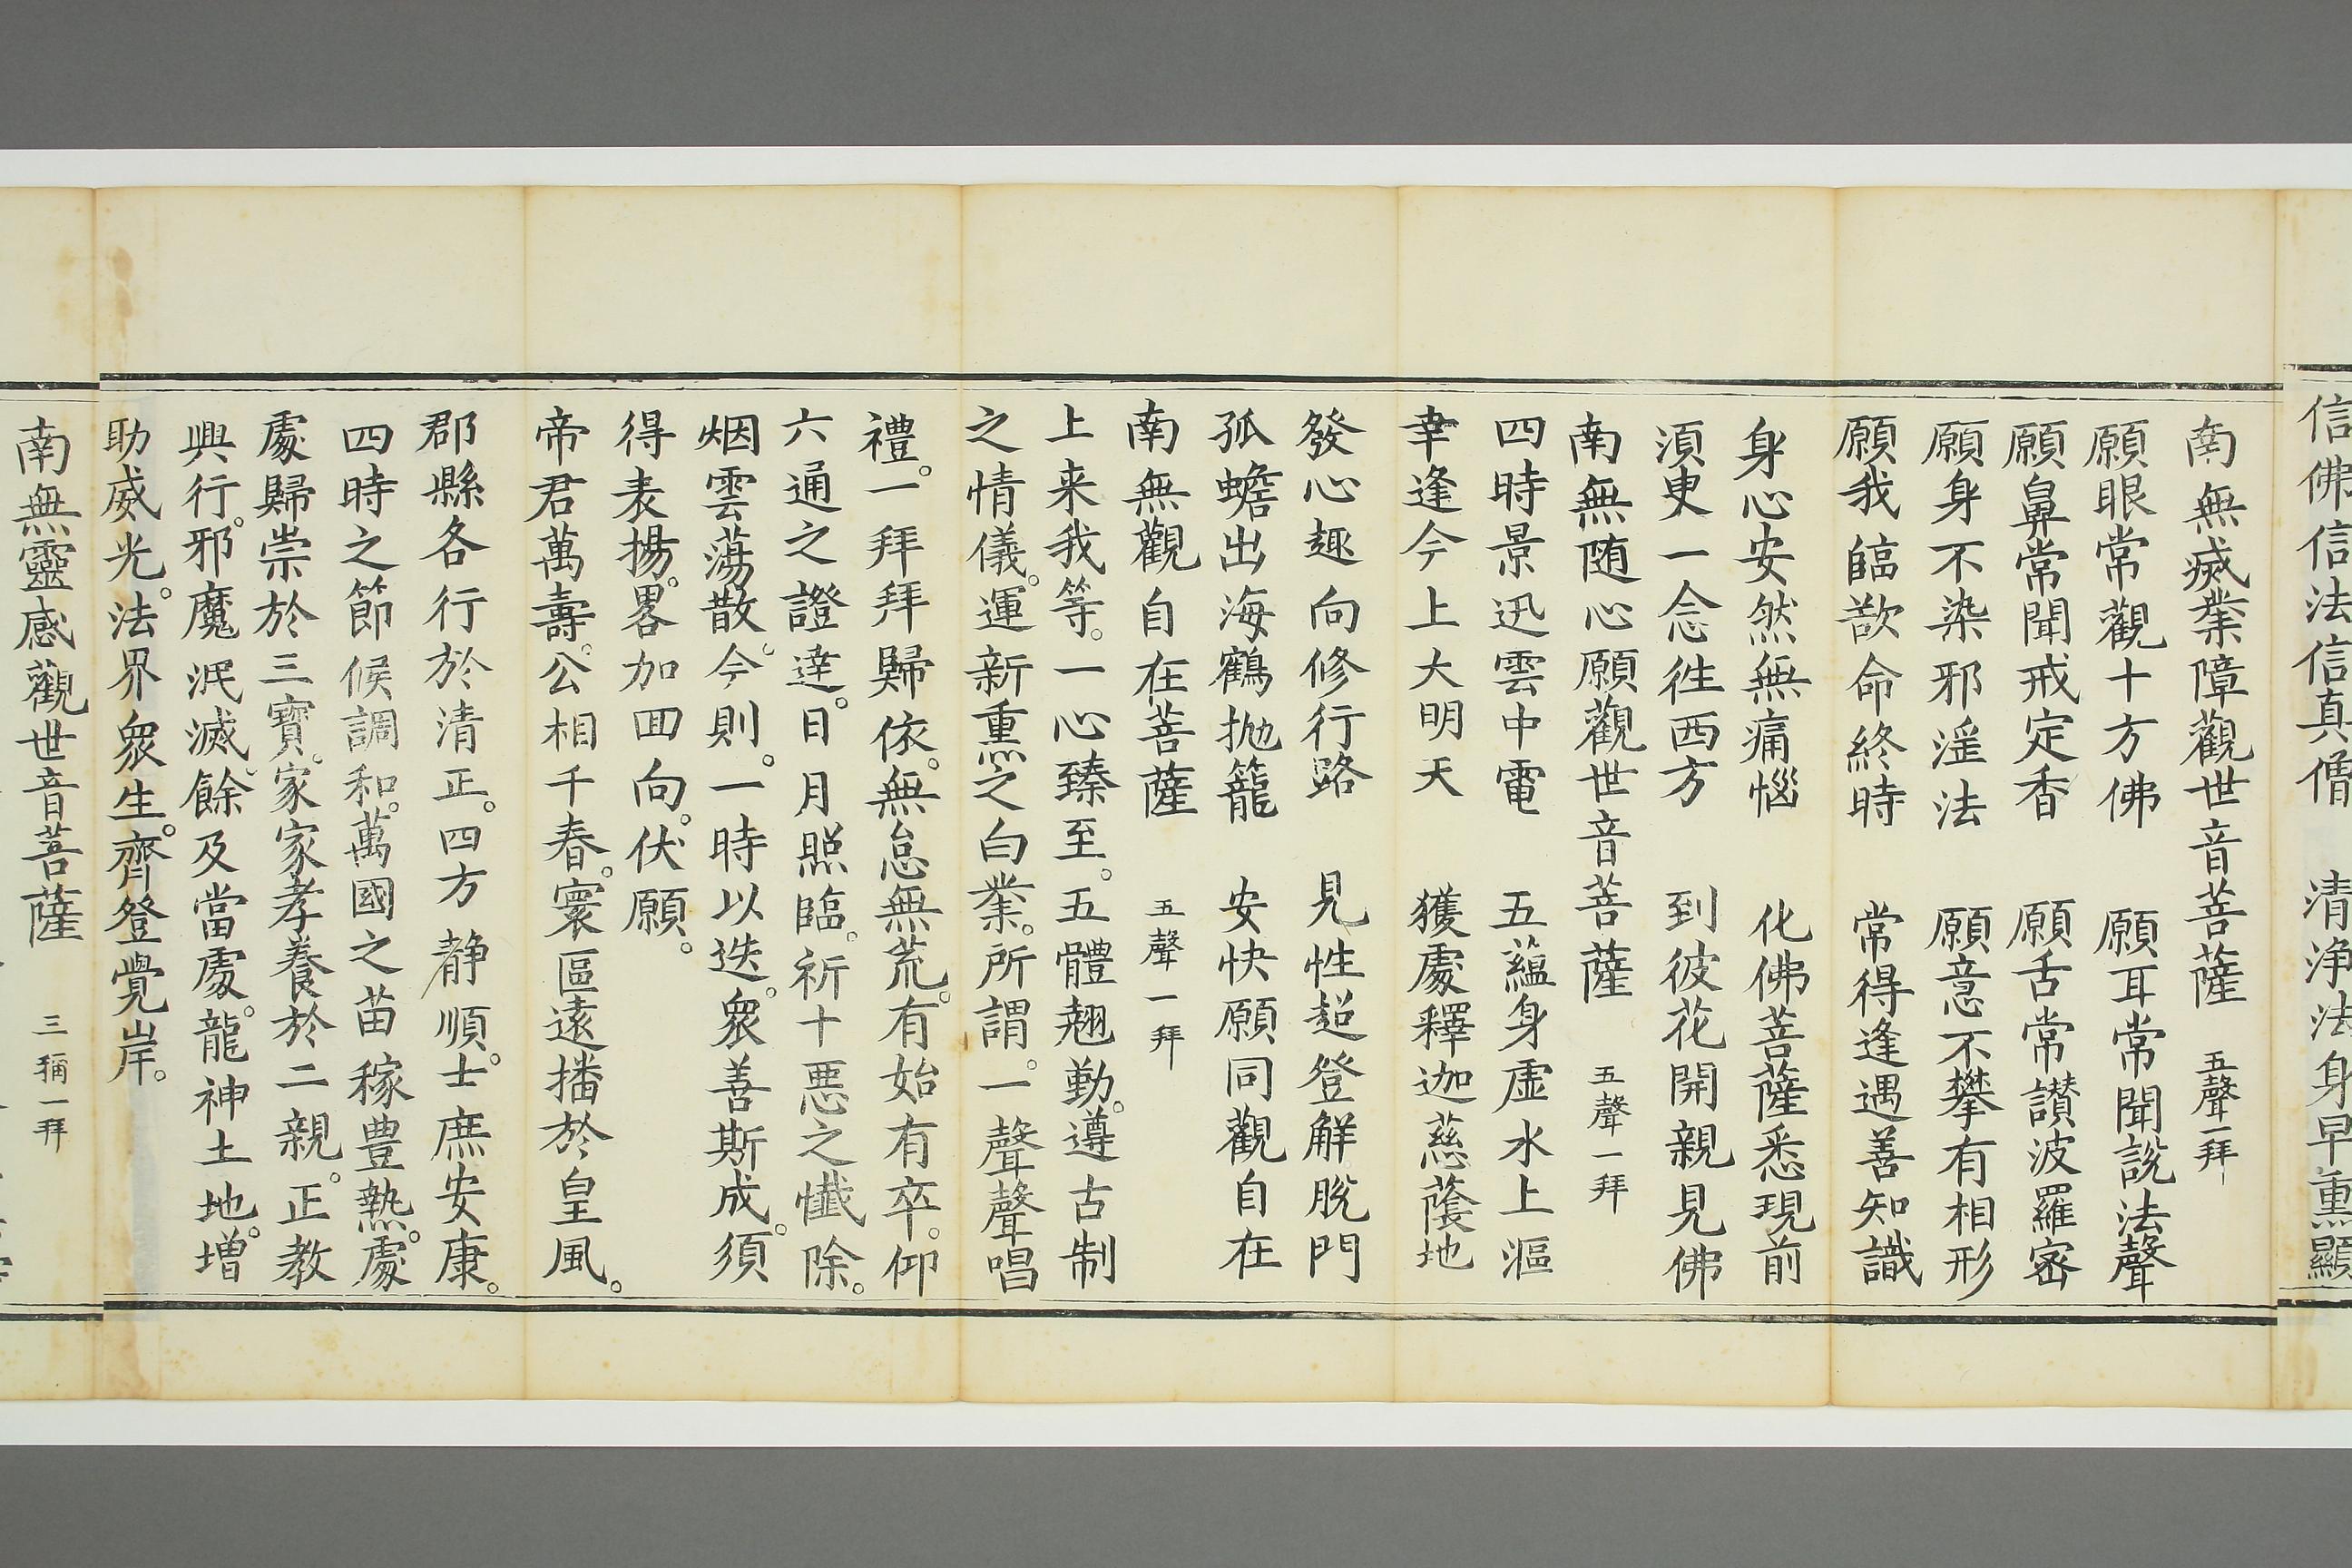 信佛信法信真僧　清浄法身早熏顯
南無㓕業障觀世音菩薩　五聲一拜
願眼常觀十方佛　願耳常聞說法聲
願鼻常聞戒定香　願舌常讃波羅宻
願身不染邪滛法　願意不攀有相形
願我臨㱃命終時　常得逢遇善知識
身心安然無痛惱　化佛菩薩悉現前
湏臾一念徃西方　到彼花開親見佛
南無随心願觀世音菩薩　五聲一拜
四時景迅雲中電　五蘊身虚水上漚
幸逢今上大明天　獲䖏釋迦慈蔭地
發心趣向修行路　見性超登解脫門
孤蟾出海鶴抛籠　安快願同觀自在
南無觀自在菩薩　五聲一拜
上来我等。一心臻至。五體翹勤。遵古制
之情儀。運新熏之白業。所謂。一聲聲唱
禮。一拜拜歸依。無怠無荒。有始有卒。仰
六通之證達。日月照臨。祈十惡之懴除。
烟雲蕩散。今則。一時以迭。眾善斯成。須
得表揚。畧加回向。伏願。
帝君萬壽。公相千春。寰區遠播於皇風。
郡縣各行於清正。四方静順。士庶安康。
四時之節候調和。萬國之苗稼豊熟。䖏
䖏歸崇於三寶。家家孝養於二親。正教
興行。邪魔泯滅。餘及當䖏。龍神土地。增
助威光。法界眾生。齊登覺岸。
南無靈感觀世音菩薩　三稱一拜